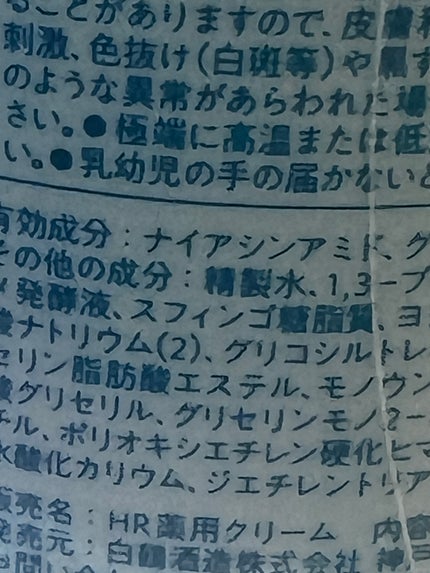 ることがありますので、皮膚
刺激、色抜け(白斑等)や黒ず
のような異常があらわれた場
さい。●極端に高温または低
い。●乳幼児の手の届かないと
有効成分：ナイアシンアミド、グ
その他の成分：精製水、1,3-ブ
発酵液、スフィンゴ糖脂質、ヨ
酸ナトリウム(2)、グリコシルトレ
セリン脂肪酸エステル、モノウン
酸グリセリル、グリセリンモノ2-
チル、ポリオキシエチレン硬化ヒマ
水酸化カリウム、ジエチレントリア
販売名：HR薬用クリーム 内容
発売元：白鶴酒造株式会社 神戸
お問い合